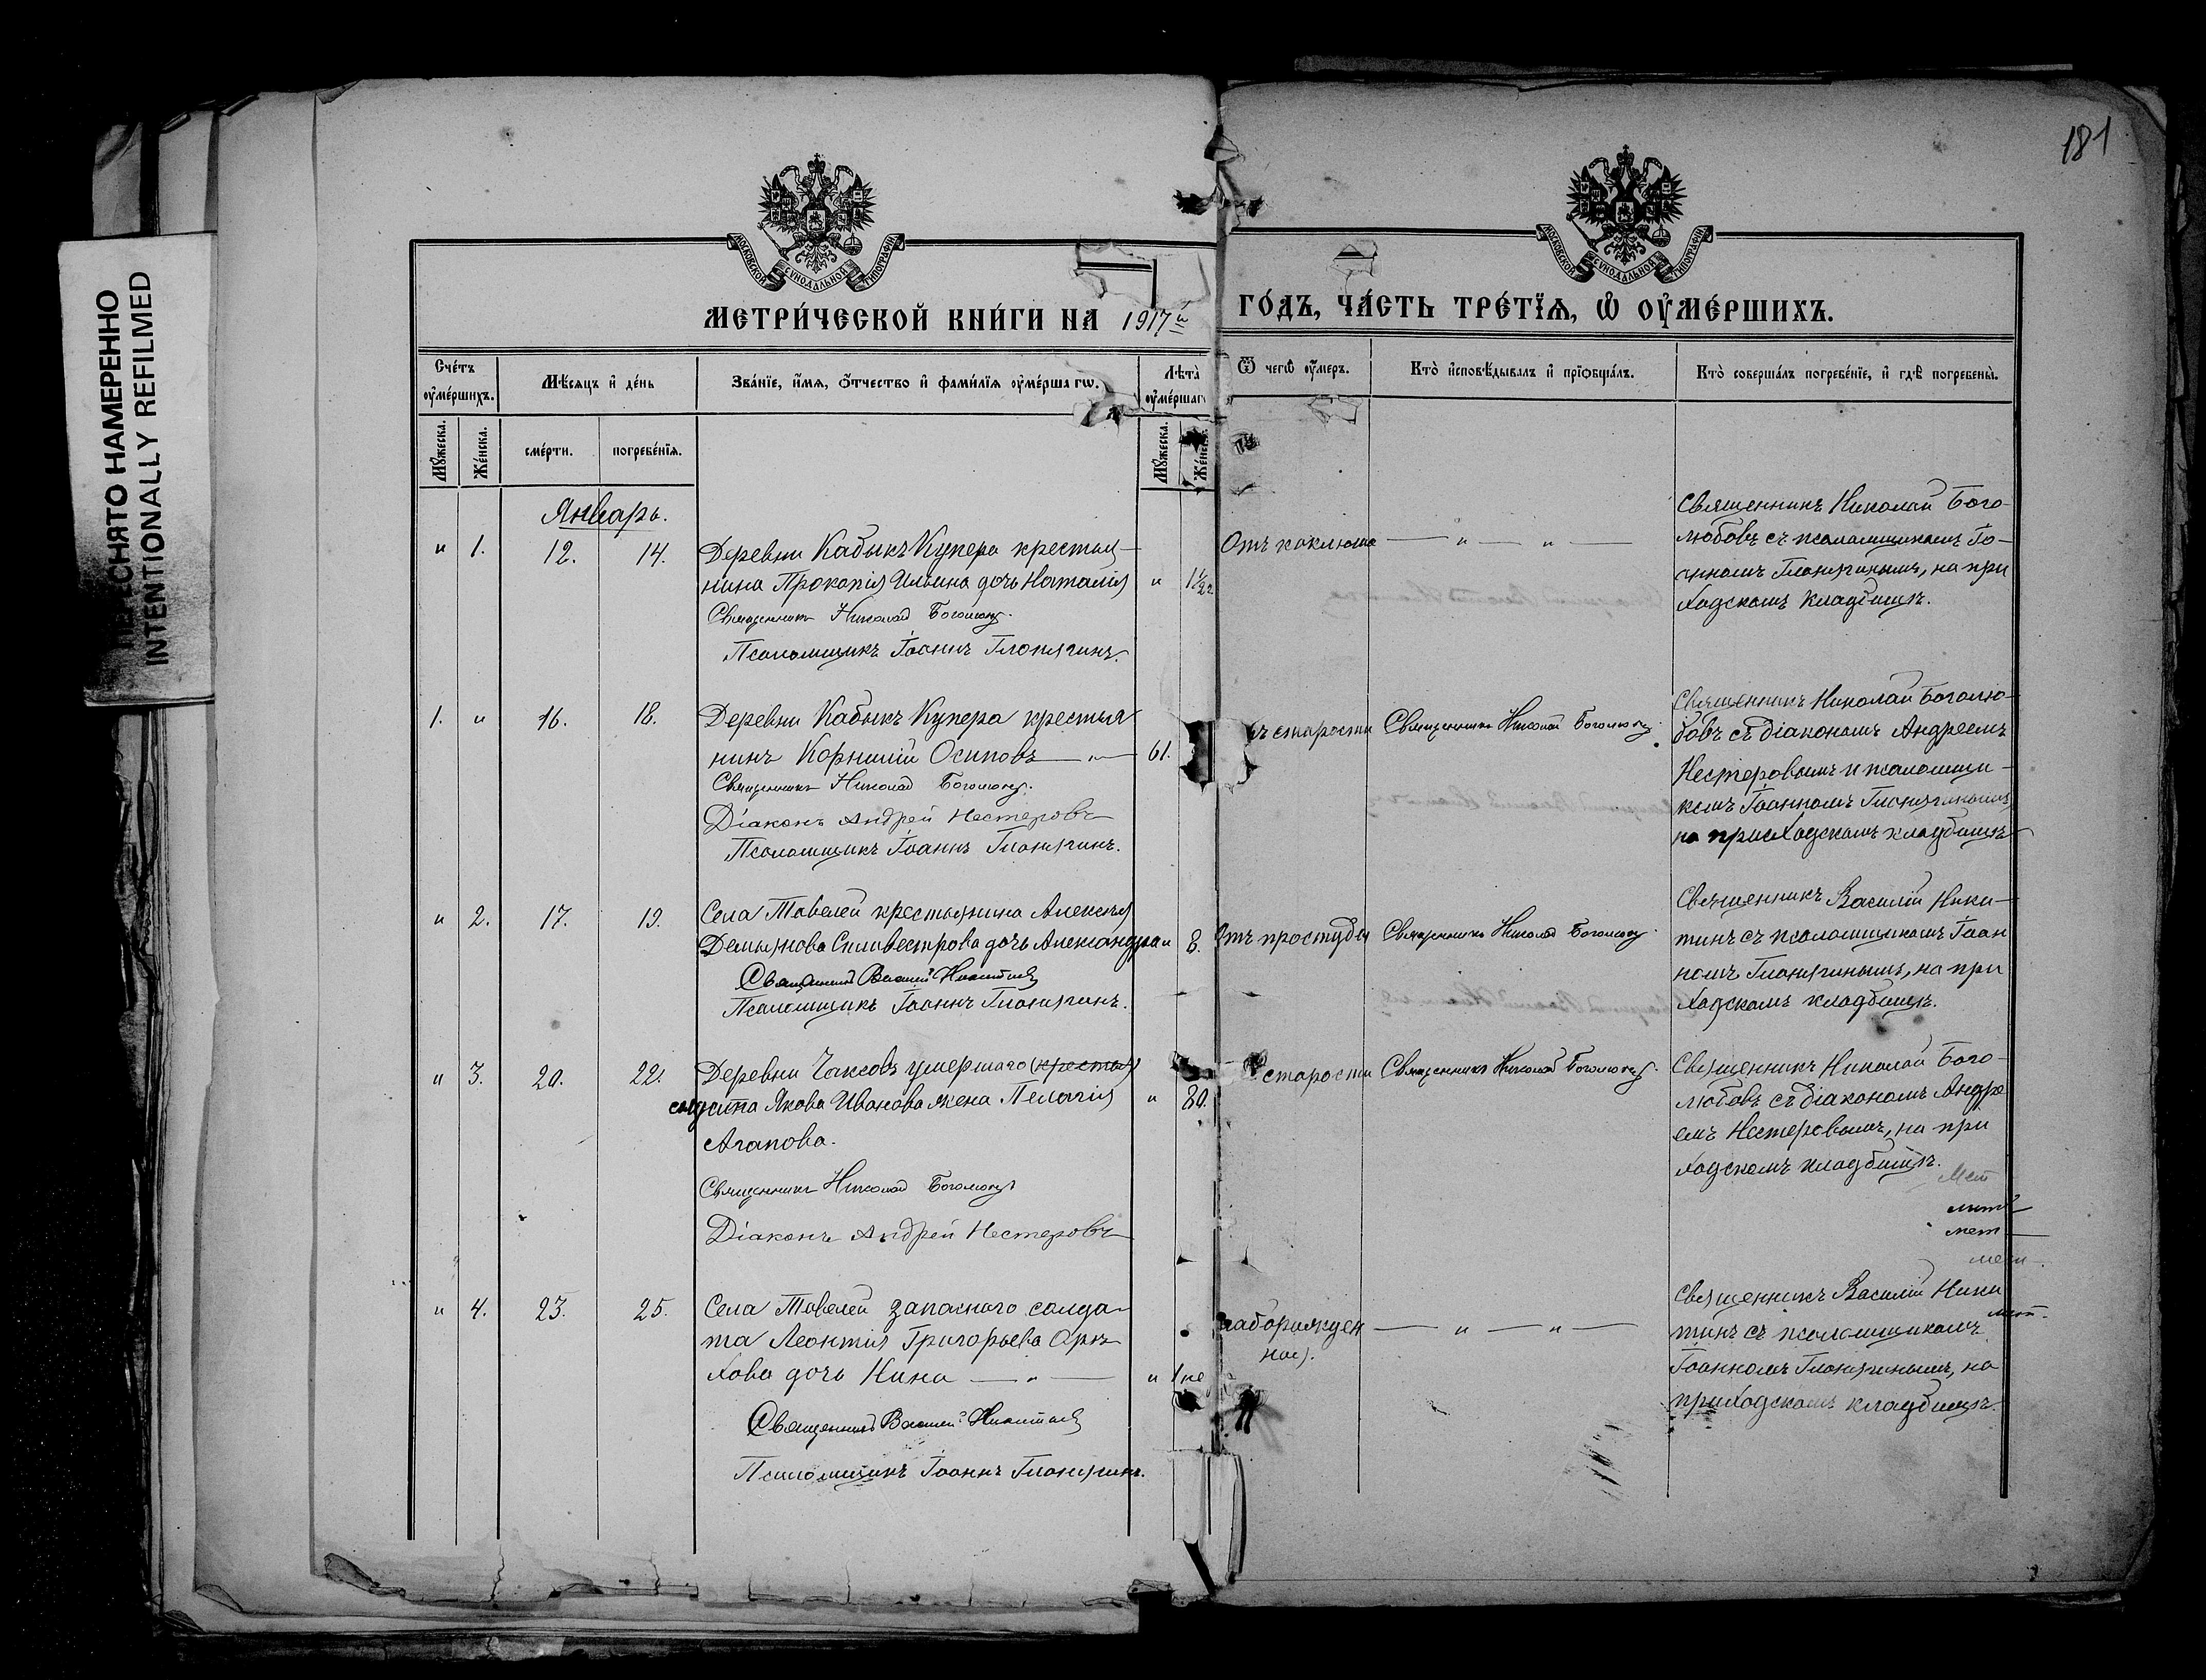 181
ПЕРЕСНЯТО НАМЕРЕННО
INTENTIONALLY REFILMED
МОСКОВСКОЙ СУНОДАЛЬНОЙ ТИПОГРАФІИ
МОСКОВСКОЙ СУНОДАЛЬНОЙ ТИПОГРАФІИ
МЕТРИ́ЧЕСКОЙ КНИ́ГИ НА 1917й ГО́ДЪ, ЧА́СТЬ ТРЕ́ТЇѦ, Ѡ҆ ОУ҆МЕ́РШИХЪ.
Сче́тъ оу҆ме́ршихъ.
Мѣ́сяцъ и҆ де́нь
Зва́нїе, и҆́мя, ѻ҆́тчество и҆ фами́лїя оу҆ме́рша гѡ.
Лѣ́та оу҆ме́ршагѡ
Ѿ чегѡ̀ оу҆́меръ.
Кто̀ и҆сповѣ́дывалъ и҆ прїѡбща́лъ.
Кто̀ соверша́лъ погребе́нїе, и҆ гдѣ̀ погребены̀.
Мꙋ́жеска.
Же́нска.
сме́рти.
погребе́нїя.
Мꙋ́жеска.
Же́нска.
Январь.
" 1. 12. 14.
Деревни Кабыкъ Купера крестья-
нина Прокопія Ильина дочь Наталія
" 1½
Священникъ Николай Боголюбовъ
Псаломщикъ Іоаннъ
Отъ коклюша — " — " —
Священникъ Николай Бого-
любовъ съ псаломщикомъ Іо-
анномъ на при
ходскомъ кладбищѣ.
1. " 16. 18.
Деревни Кабыкъ Купера крестья
нинъ Корнилій Осиповъ — " —
61.
Священникъ Николай Боголюбовъ
Діаконъ Андрей Нестеровъ
Псаломщикъ Іоаннъ
старости
Священникъ Николай Боголюбовъ
Священникъ Николай Боголю-
бовъ съ діакономъ Андреемъ
Нестеровымъ и псаломщи-
комъ Іоанномъ
на приходскомъ кладбищѣ
" 2. 17. 19.
Села Тавелей крестьянина Алексѣя
Демьянова Силивестрова дочь Александра
" 8.
Священникъ Василій Никитинъ
Псаломщикъ Іоаннъ
Отъ простуды
Священникъ Николай Боголюбовъ
Священникъ Василій Ники-
тинъ съ псаломщикомъ Іоан
номъ на при
ходскомъ кладбищѣ.
" 3. 20. 22.
Деревни Чаксовъ умершаго (кресть)
солдата Якова Иванова жена Пелагія
Агапова.
" 80.
Священникъ Николай Боголюбовъ
Діаконъ Андрей Нестеровъ
старости
Священникъ Николай Боголюбовъ
Священникъ Николай Бого-
любовъ съ діакономъ Андре
емъ Нестеровымъ, на при
ходскомъ кладбищѣ.
" 4. 23. 25.
Села Тавелей запаснаго солда-
та Леонтія Григорьева Орѣ
хова дочь Нина — " —
" 1 не
Священникъ Василій Никитинъ
Псаломщикъ Іоаннъ
— " — " —
Священникъ Василій Ники
тинъ съ псаломщикомъ
Іоанномъ на
приходскомъ кладбищѣ